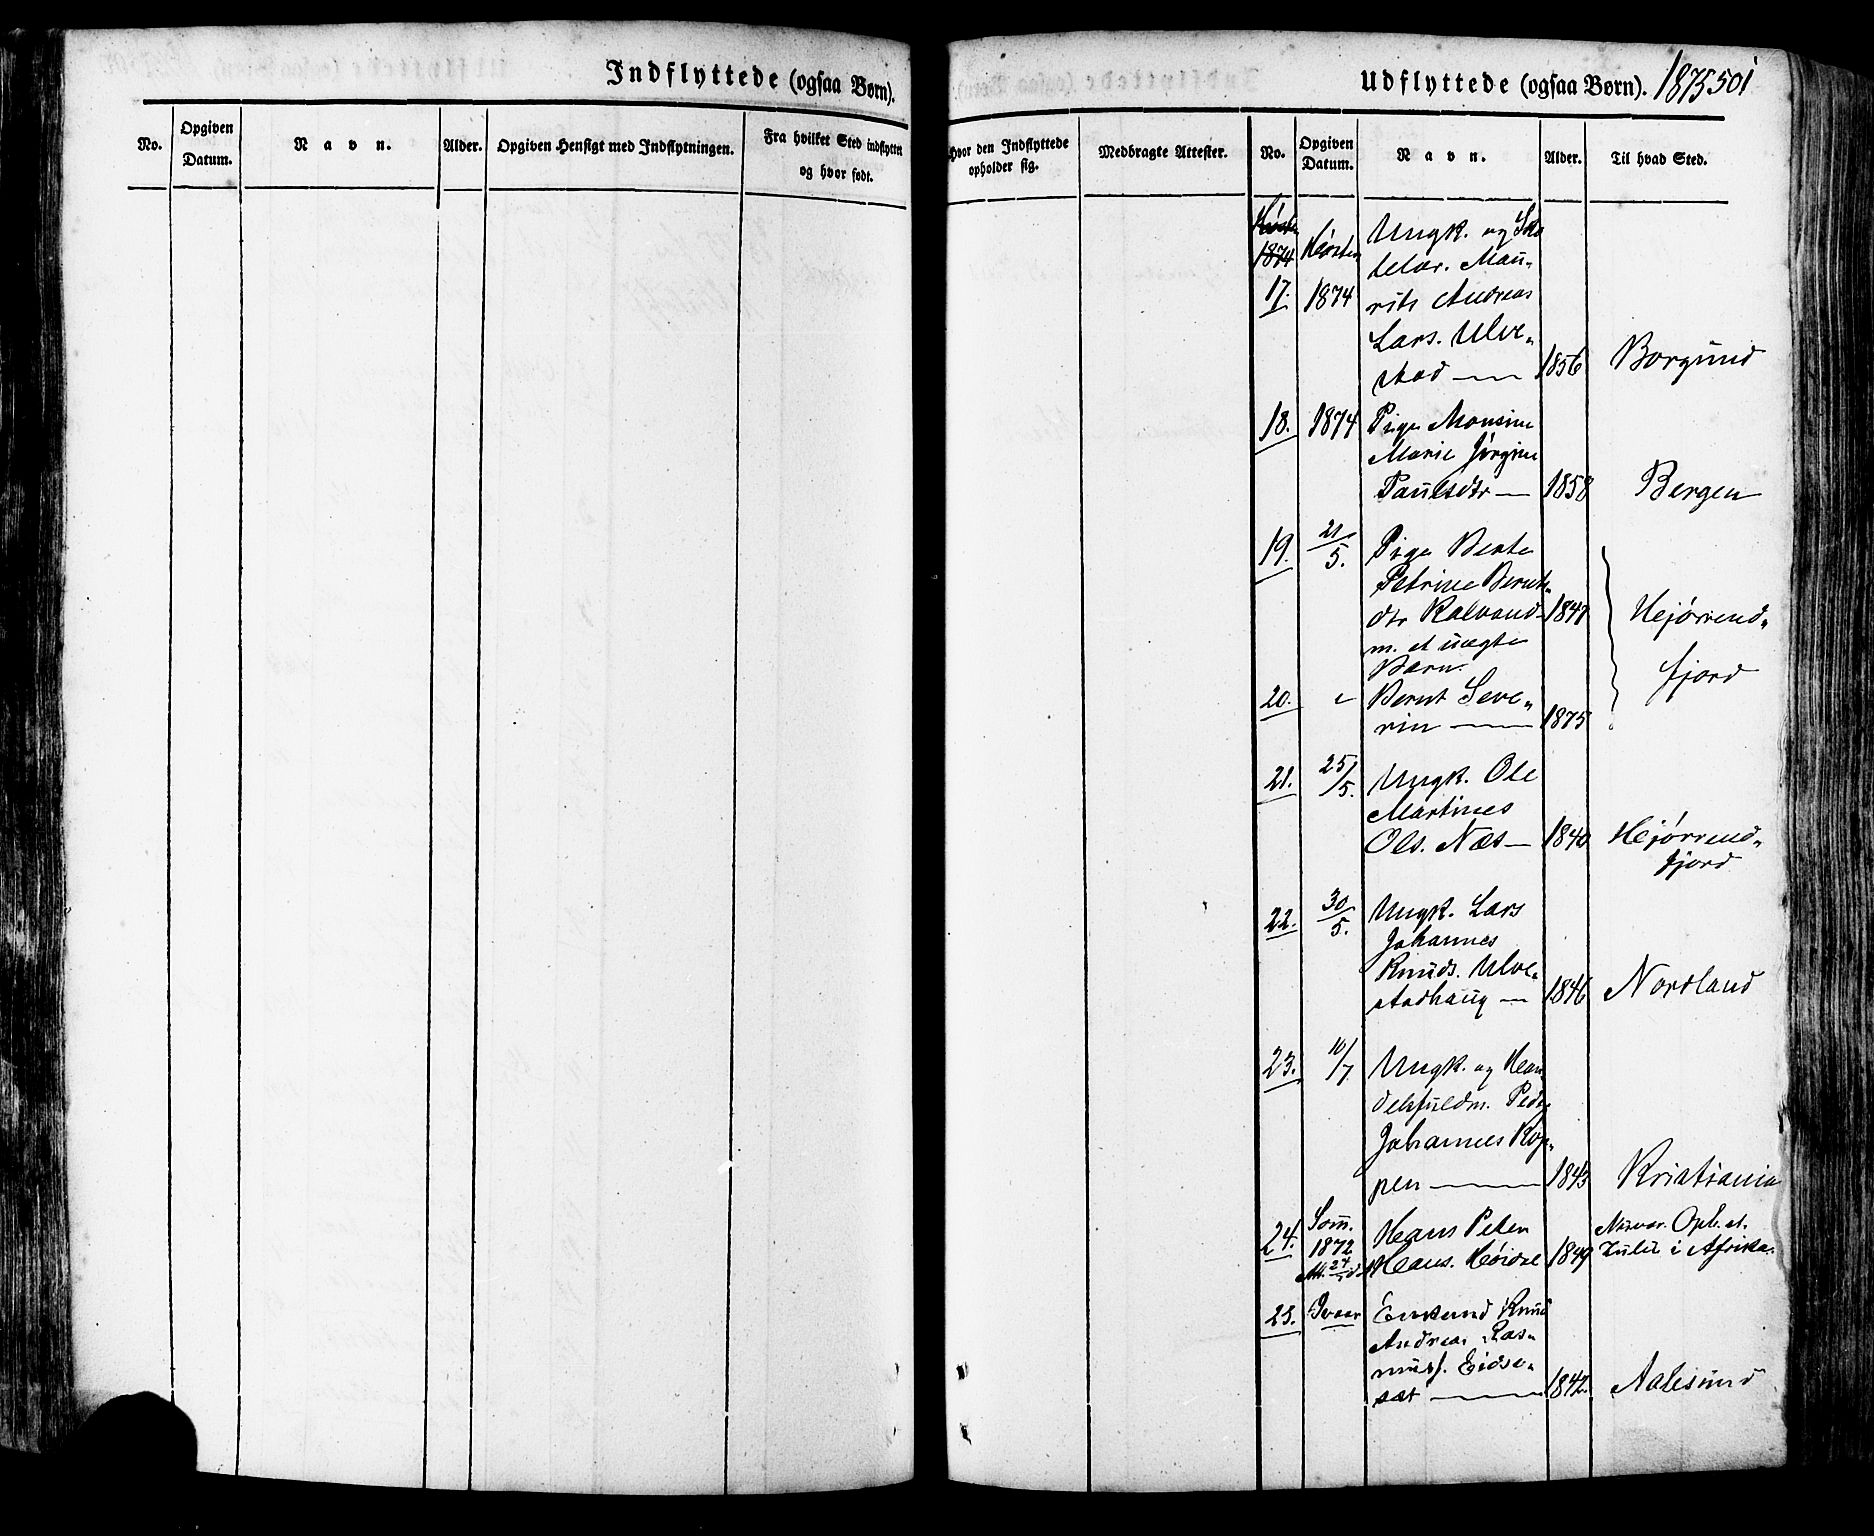 Indflyttede (ogsaa Børn).
No.
Opgiven Datum.
Navn.
Alder.
Opgiven Hensigt med Indflytningen.
Fra hvilket Sted indflyttet
og hvor født.
Udflyttede (ogsaa Børn). 1875 501
Hvor den Indflyttede
opholder sig.
Medbragte Attester.
No.
Opgiven
Datum.
Navn.
Alder.
Til hvad Sted.
Høsten Høsten Ungk. og Sko
1874 lelær. Mau-
17. 1874 rits Andreas
Lars. Ulve-
stad — 1856 Borgund
18. 1874 Pige Monsine
Marie Jørgine
Paulsdtr — 1858 Bergen
19. 21/5. Pige Berte
Petrine Bernts-
dtr Kalvand 1847 Hjørrend-
m. et uægte fjord
Barn.
20. Bernt Seve-
rin — 1875
21. 25/5. Ungk. Ole
Martines
Ols. Næs — 1840 Hjørrend-
fjord
22. 30/5. Ungk. Lars
Johannes
Knuds. Ulve-
stadhaug — 1846 Nordland
23. 10/7 Ungk. og Han
delsfuldm. Peder
Johannes Kop-
pen — 1843 Kristiania
24. Som. Hans Peter Nuvær. Oph. st.
1872 Hans. Høidal 1849 Zulu i Afrika.
Att. 24/
25. Ivaar Enkemd Knud
Andreas Ras-
muss. Eidse-
sæt — 1842 Aalesund